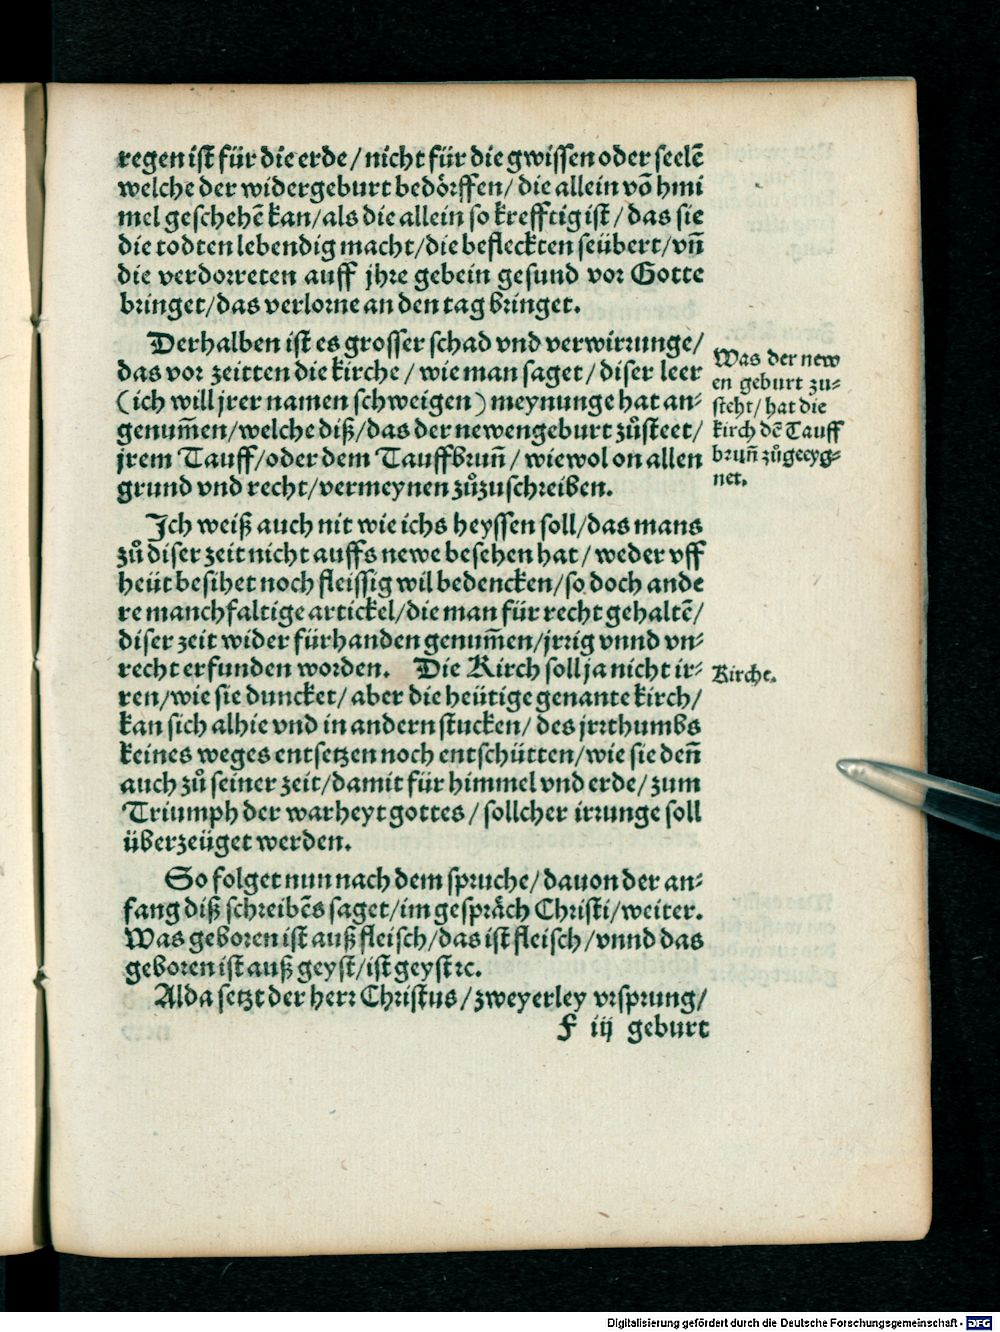 regen ist für die erde / nicht für die gwissen oder seelẽ
welche der widergeburt bedörffen / die allein võ himi
mel geschehẽ kan / als die allein so krefftig ist / das sie
die todten lebendig macht / die befleckten seübert / vñ
die verdorreten auff jhre gebein gesund vor Gotte
bringet / das verlorne an den tag bringet.
Derhalben ist es grosser schad vnd verwirrunge /
das vor zeitten die kirche / wie man saget / diser leer
( ich will jrer namen schweigen ) meynunge hat an⸗
genum̃en / welche diß / das der newengeburt zůsteet /
jrem Tauff / oder dem Tauffbruñ / wiewol on allen
grund vnd recht / vermeynen zůzuschreiben.
Was der new
en geburt zu⸗
steht / hat die
kirch dẽ Tauff
bruñ zůgeeyg⸗
net.
Ich weiß auch nit wie ichs heyssen soll / das mans
zů diser zeit nicht auffs newe besehen hat / weder vff
heüt besihet noch fleissig wil bedencken / so doch ande
re manchfaltige artickel / die man für recht gehaltẽ /
diser zeit wider fürhanden genum̃en / jrrig vnnd vn⸗
recht erfunden worden. Die Kirch soll ja nicht ir⸗
ren / wie sie duncket / aber die heütige genante kirch /
kan sich alhie vnd in andern stucken / des jrrthumbs
keines weges entsetzen noch entschütten / wie sie deñ
auch zů seiner zeit / damit für himmel vnd erde / zum
Triumph der warheyt gottes / sollcher irrunge soll
überzeüget werden.
Kirche.
So folget nun nach dem spruche / dauon der an⸗
fang diß schreibẽs saget / im gespräch Christi / weiter.
Was geboren ist auß fleisch / das ist fleisch / vnnd das
geboren ist auß geyst / ist geyst ꝛc.
Alda setzt der herr Christus / zweyerley vrsprung /
F iij geburt
Digitalisierung gefördert durch die Deutsche Forschungsgemeinschaft - DFG